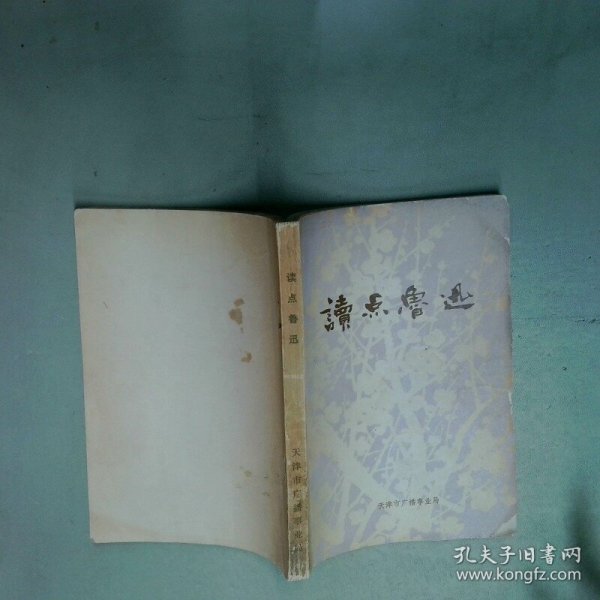 读点鲁迅
天津市广播事业局
讀点魯迅
天津市广播事业局
孔夫子旧书网
www.kongfz.com